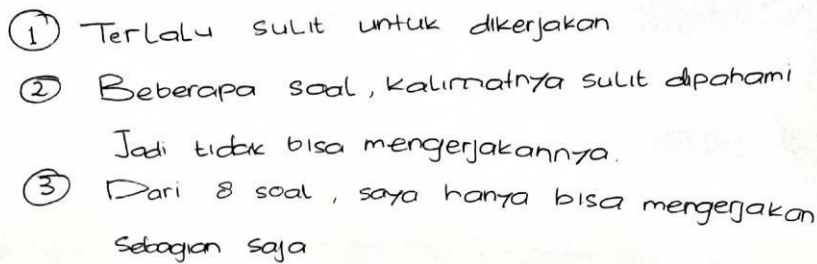 ① Terlalu sulit untuk dikerjakan
② Beberapa soal, kalimatnya sulit dipahami
Jadi tidak bisa mengerjakannya.
③ Dari 8 soal, saya hanya bisa mengerjakan
sebagian saja